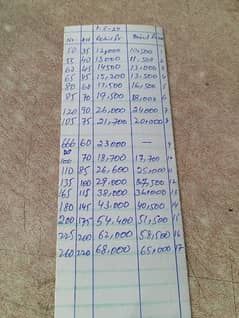 No AH Retail Pr
50 35 12,000 10,500
55 40 13,000 11,500
62 45 14500 13,000
65 45 15,200 13,500
80 60 17,500 16,500
85 70 19,500 18,000
120 90 26,000 24,000
105 75 21,700 20,000
666 60 23000 —
100 70 18,700 17,700 10
110 85 26,600 25,000 11
135 100 29,000 27,500 12
65 115 38,000 36,000 13
180 145 43,000 40,500 14
200 175 54,400 51,500 15
225 200 62,000 58,500 16
260 220 68,000 65,000 17